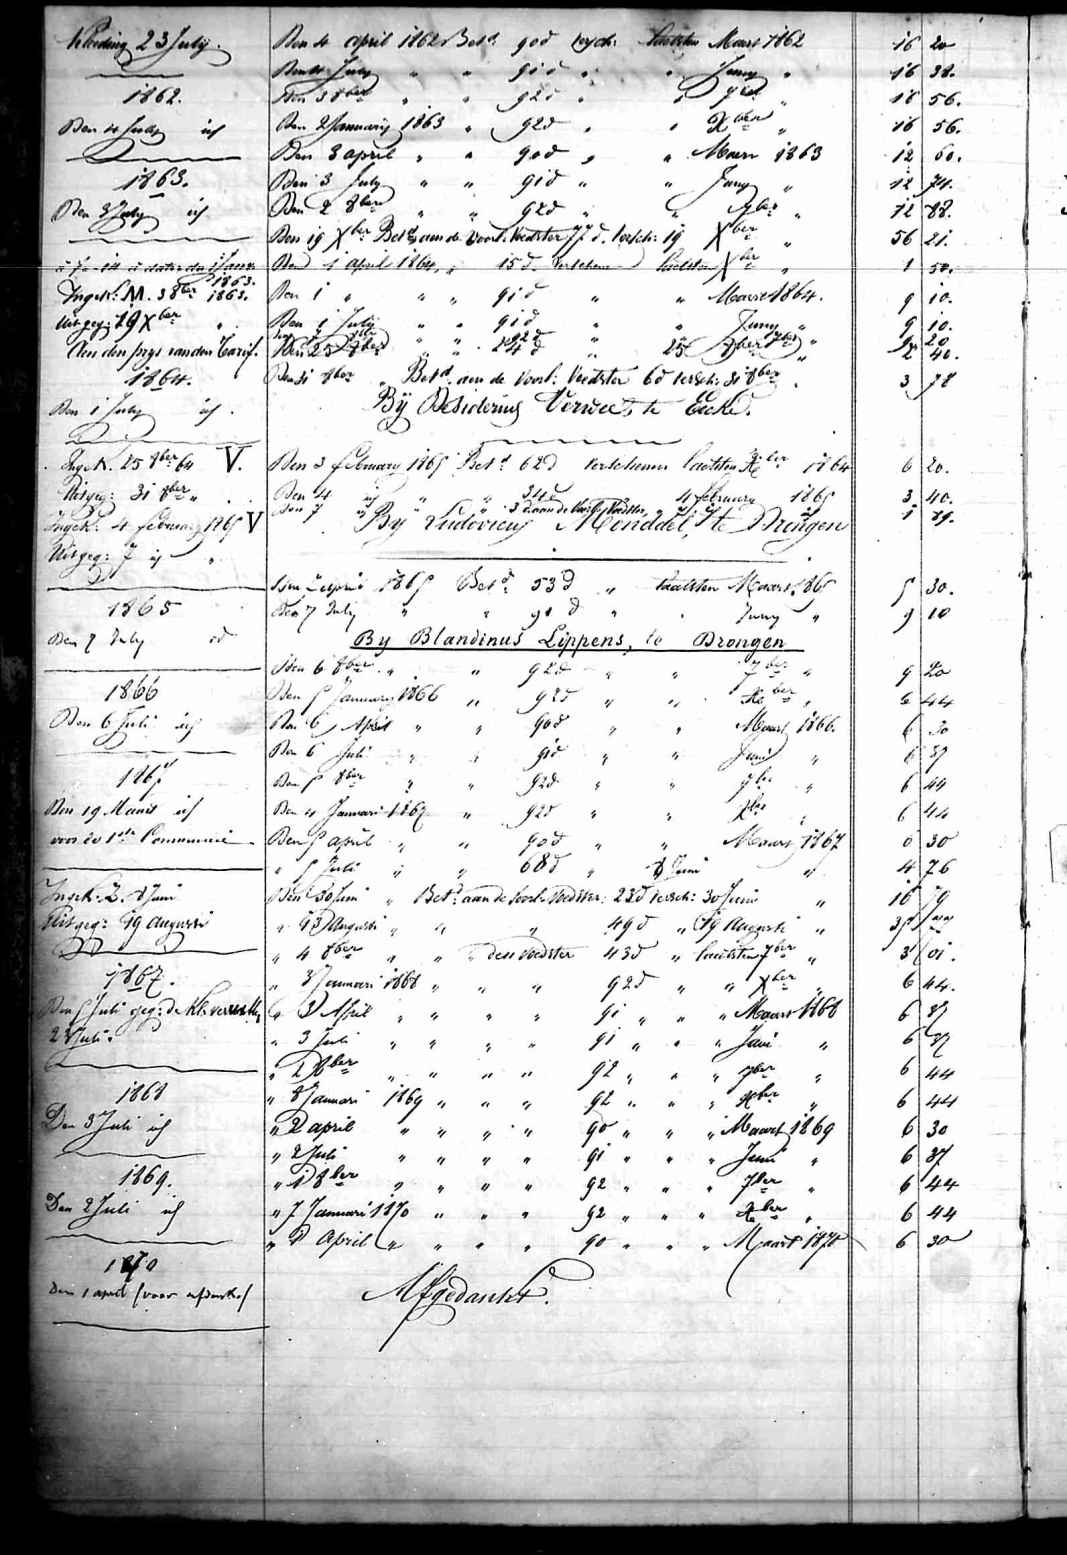 Kleeding 23 July.
1862.
Den 4 July id
1863.
Den 3 July id
Ingek: M. 3 8ber 1863.
Uitgeg: 19 Xber "
Aen den prys van den Tarif.
1864.
Den 1 July id.
Ingek. 25 8ber 64 V.
Uitgeg: 31 8ber "
Ingek. 4 february 1865 V
Uitgeg: 7 id "
1865
Den 7 July id
1866
Den 6 Juli id
1867
Den 19 Maart id
voor de 1ste Communie
Ingek. Z. 8 Juni
Uitgeg: 19 Augusti
1867.
Den 5 Juli geg: de kl:
23 Juli.
1868
Den 3 Juli id
1869.
Den 2 Juli id
1870
Den 1 april (voor
Den 4 april 1862 Betd 90d versch: laetsten Maert 1862 16 20
Den 4 July " " 91d " " Juny " 16 38.
Den 3 8ber " " 92d " " 7ber " 16 56.
Den 2 January 1863 " 92d " " Xber " 16 56.
Den 3 april " " 90d " " Maert 1863 12 60.
Den 3 July " " 91d " " Juny " 12 74.
Den 2 8ber " " 92d " " 7ber " 12 88.
Den 19 Xber Betd aen de voorl: Voedster 77 d. versch: 19 Xber " 56 21.
Den 1 april 1864 " 15d. verschenen laetsten Xber " 1 50.
Den 1 " " " 91d " " Maert 1864. 9 10.
Den 1 July " " 91d " " Juny " 9 10.
" 92d " 7ber " 9 20
Den 25 8ber " " 24d " 25 8ber " 2 40.
Den 31 8ber " Betd. aen de voorl: Voedster 6d versch: 31 8ber " 3 78
By Desiderius Verwee, te Eecke.
Den 3 february 1865 Betd 62d verschenen laetsten Xber 1864 6 20.
Den 4 id " " 34d " 4 february 1865 3 40.
Den 7 " " 3d aan de Voorl. Voedster " 7 id " 1 89.
By Ludovicus Menddel, te Drongen
Den 7 april 1865 Betd. 53d " laetsten Maart 1865 5 30.
Den 7 July " " 91d " " Juny " 9 10
By Blandinus Lippens, te Drongen
Den 6 8ber " " 92d " " 7ber " 9 20
Den 5 January 1866 " 92d " " Xber " 6 44
Den 6 April " " 90d " " Maart 1866. 6 30
Den 6 Juli " " 91d " " Juni " 6 37
Den 5 8ber " " 92d " " 7ber " 6 44
Den 4 Januari 1867 " 92d " " Xber " 6 44
Den 5 april " " 90d " " Maart 1867 6 30
" 5 Juli " " 68d " 8 Juni " 4 76
Den 30 Juni " Betd aan de voorl. Voedster: 23d versch: 30 Juni " 16 79
" 19 Augusti " " " 49d " 19 Augusti " 35
" 4 8ber " " " deze Voedster 43d " laetsten 7ber " 3 01.
" 3 Januari 1868 " " " 92d " " Xber " 6 44.
" 3 April " " " " 91 " " " Maart 1868 6 37
" 3 Juli " " " " 91 " " " Juni " 6 37
" 2 8ber " " " " 92 " " " 7ber " 6 44
" 8 Januari 1869 " " " 92 " " " Xber " 6 44
" 2 april " " " " 90 " " " Maart 1869 6 30
" 2 Juli " " " " 91 " " " Juni " 6 37
" 1 8ber " " " " 92 " " " 7ber " 6 44
" 7 Januari 1870 " " " 92 " " " Xber " 6 44
" 8 April " " " " 90 " " " Maart 1870 6 30
Afgedankt.